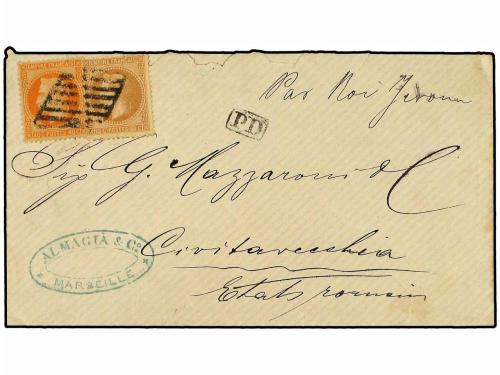 EMPIRE FRANÇAIS EMPIRE FRANÇAIS
Par Roi Jerome
PD
Sig G. Mazzaroni & C
Civitavecchia
Etats romains
ALMAGIÀ & Cº
MARSEILLE